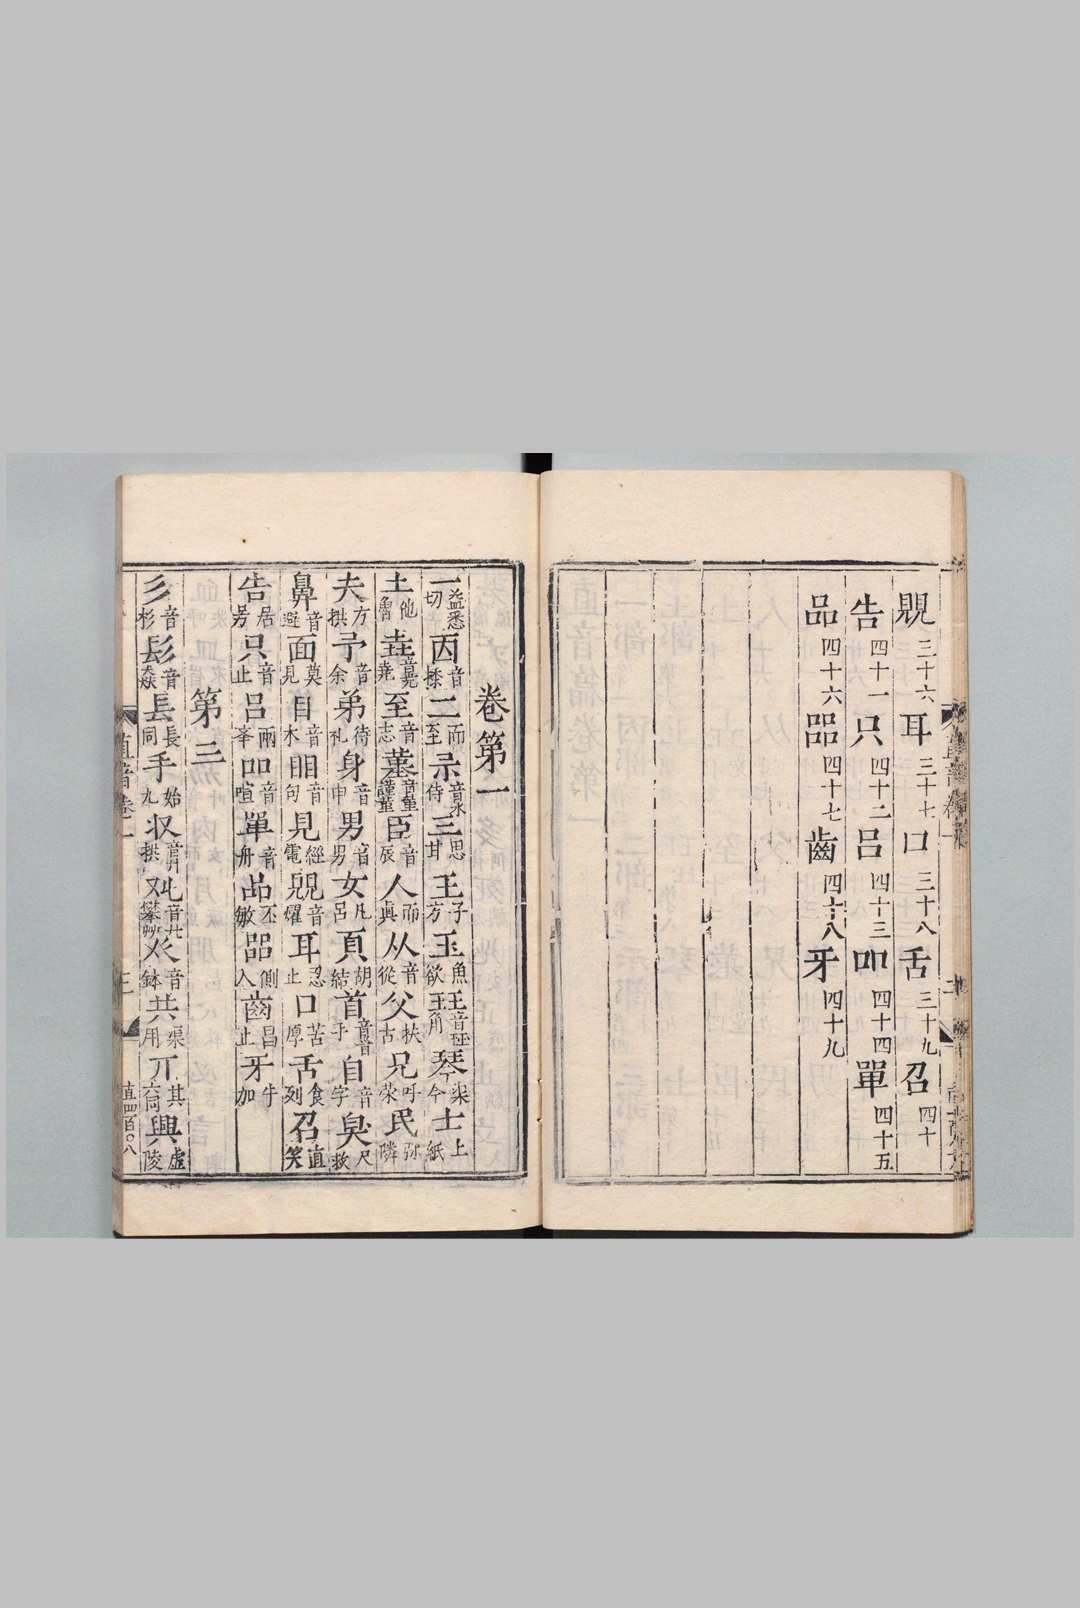 覞三十六耳三十七口三十八舌三十九召四十
告四十一只四十二吕四十三吅四十四單四十五
品四十六㗊四十七齒四十八牙四十九
卷第一
一益悉切㐁音㮇二而至示音侍三思甘王子方玉魚欲玨音角琴柒今士上紙
土他魯垚音堯至音志臣音辰人而真从音從父扶古兄吁荣民弥隣
夫方拱予音余弟待礼身音申男音男女凡吕頁胡結首手自音字臭尺救
鼻音避面莫見目音木䀠音句見經電覞音耀耳忍止口苦厚舌食列召直笑
告居号只音止吕兩峯吅音喧單音丹品丕敏㗊側入齒昌止牙牛加
第三
彡音杉髟音猋長長同手始九収拱𠬜攀癶音鉢共渠用丌其興虚陵
直音卷一
三
直四百〇八